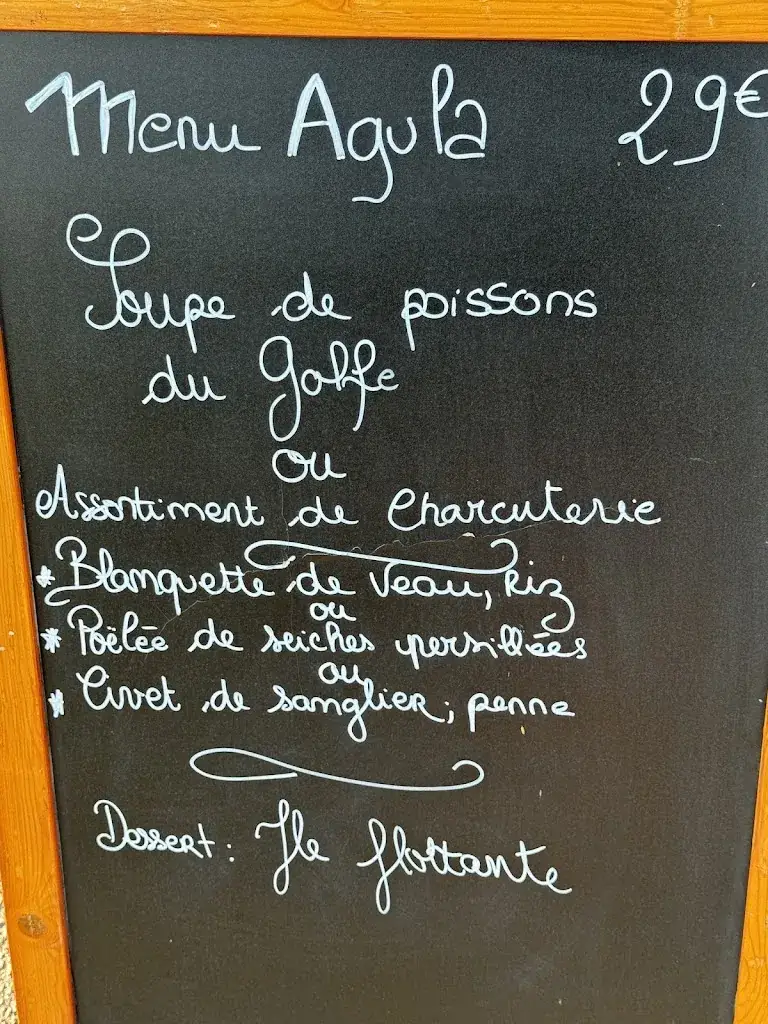 Menu Agula 29€
Soupe de poissons
du Golfe
ou
Assortiment de charcuterie
* Blanquette de veau, riz
ou
* Poëlée de seiches persillées
ou
* Civet de sanglier, penne
Dessert : Ile flottante